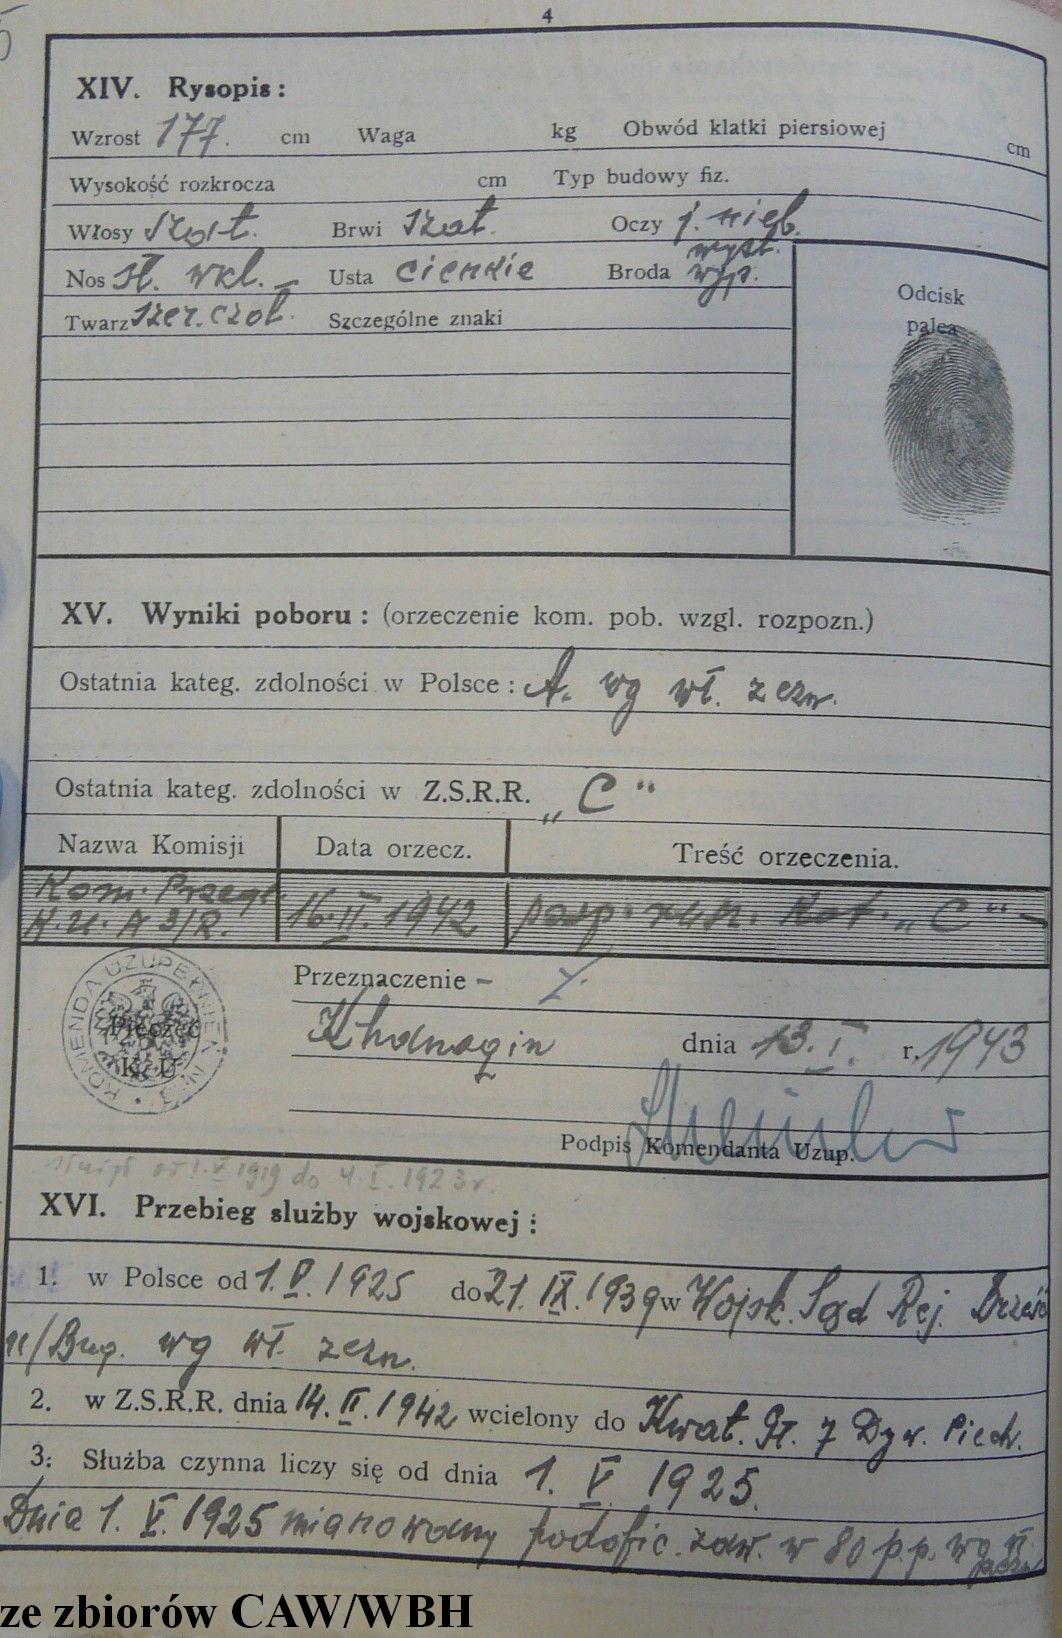 4
XIV. Rysopis:
Wzrost 177. cm Waga kg Obwód klatki piersiowej cm
Wysokość rozkrocza cm Typ budowy fiz.
Włosy szat. Brwi szat. Oczy j. nieb.
Nos śr. wkl. Usta cienkie Broda wyst. wyp.
Twarz szer. czoł. Szczególne znaki
Odcisk
palca
XV. Wyniki poboru: (orzeczenie kom. pob. wzgl. rozpozn.)
Ostatnia kateg. zdolności w Polsce: A. wg wł. zezn.
Ostatnia kateg. zdolności w Z.S.R.R. „C“
Nazwa Komisji Data orzecz. Treść orzeczenia.
Kom. Przegl.
K. U. 16.II.1942 posp. rusz. Kat. „C“ –
KOMENDA UZUPEŁNIEŃ Nr. 3
Pieczęć
K. U
Przeznaczenie –
Khanaqin dnia 13.I. r. 1943
Podpis Komendanta Uzup.
służył od 1.V 1919 do 4.I.1923r.
XVI. Przebieg służby wojskowej:
1. w Polsce od 1.V.1925 do 21.IX.1939 w Wojsk. Sąd Rej. Brześć
n/Bug. wg wł. zezn.
2. w Z.S.R.R. dnia 14.II.1942 wcielony do Kwat. Gł. 7 Dyw. Piech.
3. Służba czynna liczy się od dnia 1. V 1925.
Dnia 1. V. 1925 mianowany podofic. zaw. w 80 p.p. wg wł.
zezn.
ze zbiorów CAW/WBH